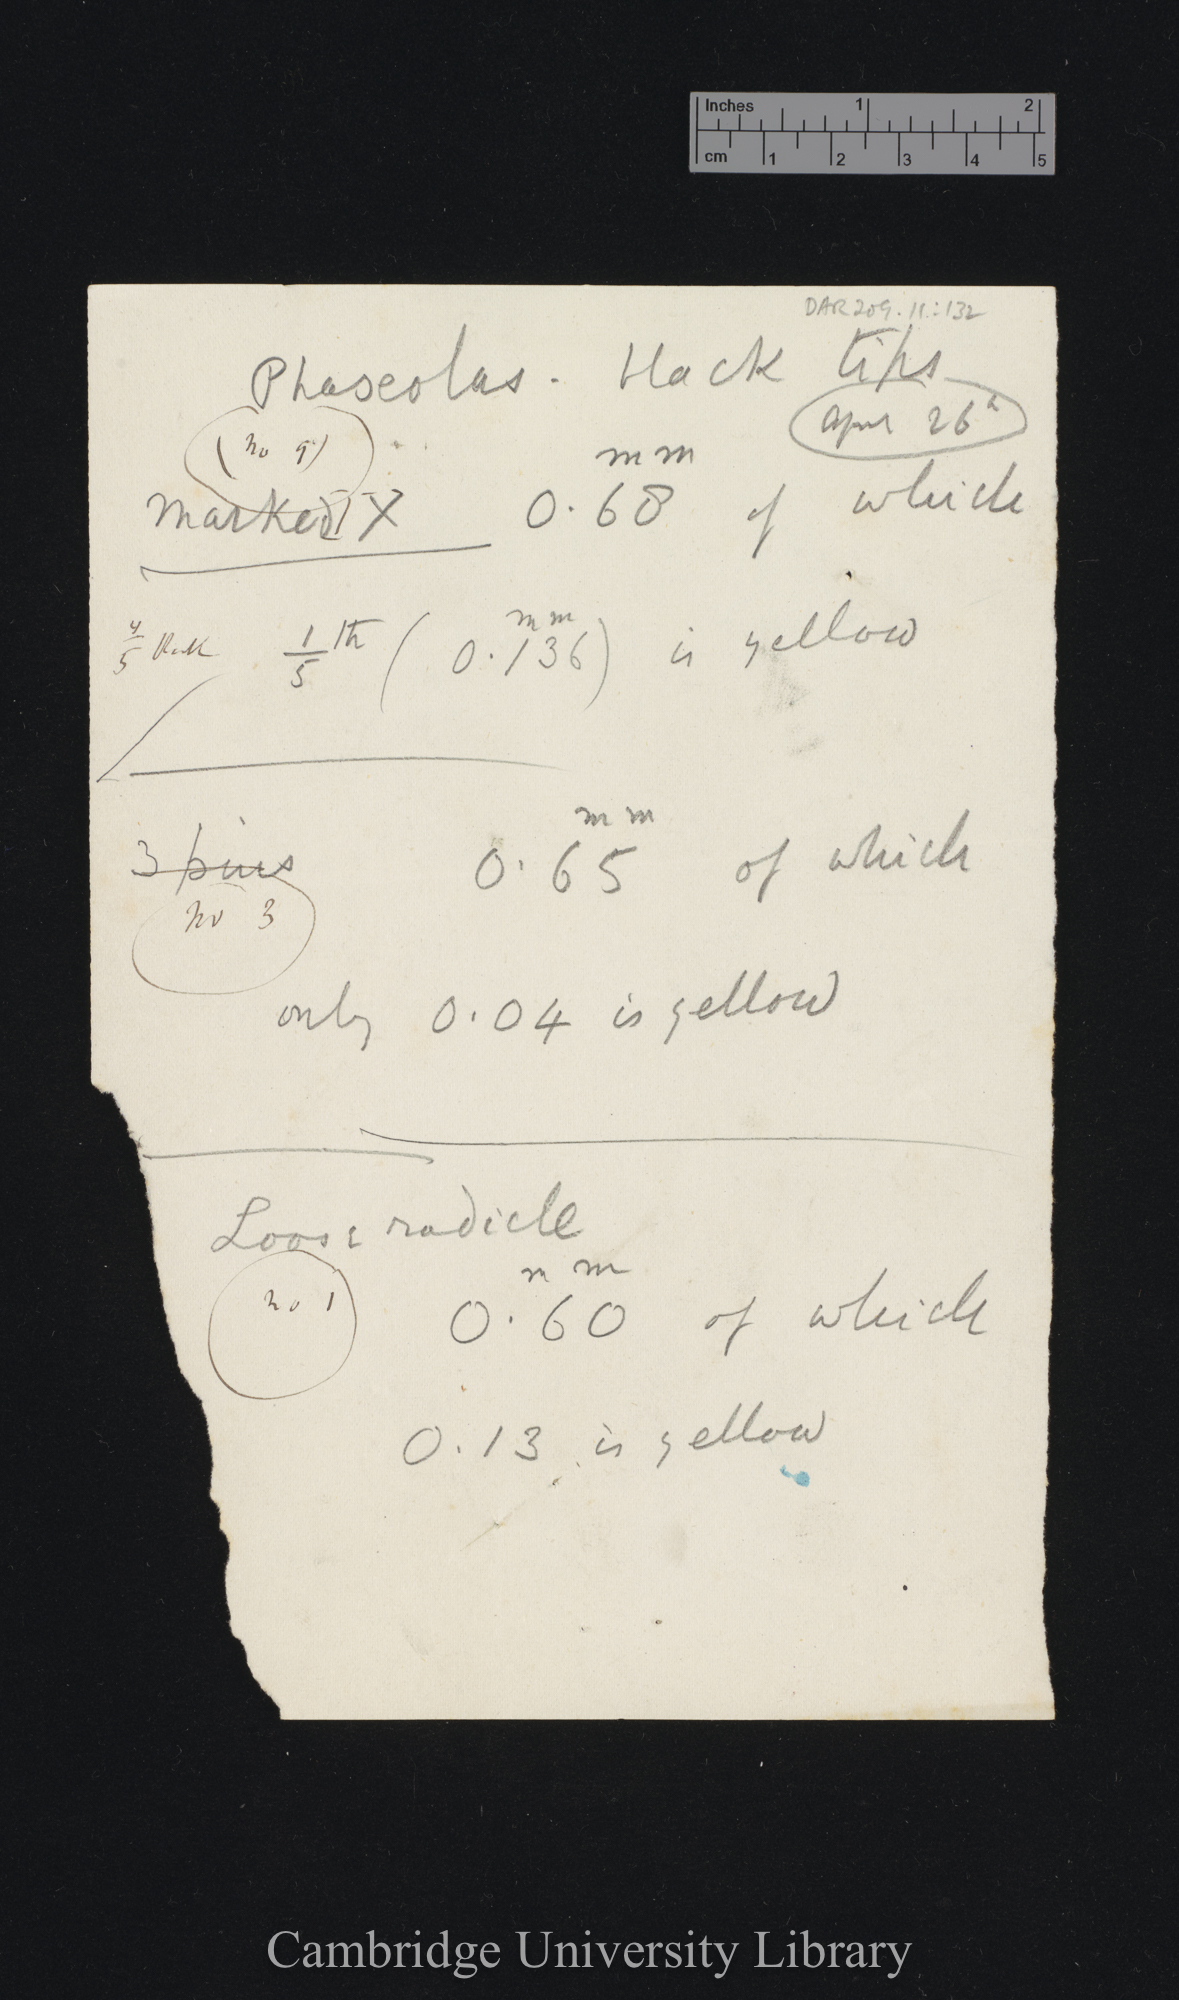 Inches 1 2
cm 1 2 3 4 5
DAR 209.11:132
Phaseolus. black tips
April 26th
(no 9)
mm
marked X 0.68 of which
mm
4/5 Black 1/5 th (0.136) is yellow
mm
3 pins 0.65 of which
no 3
only 0.04 is yellow
Loose radicle
mm
no 1 0.60 of which
0.13 is yellow
Cambridge University Library